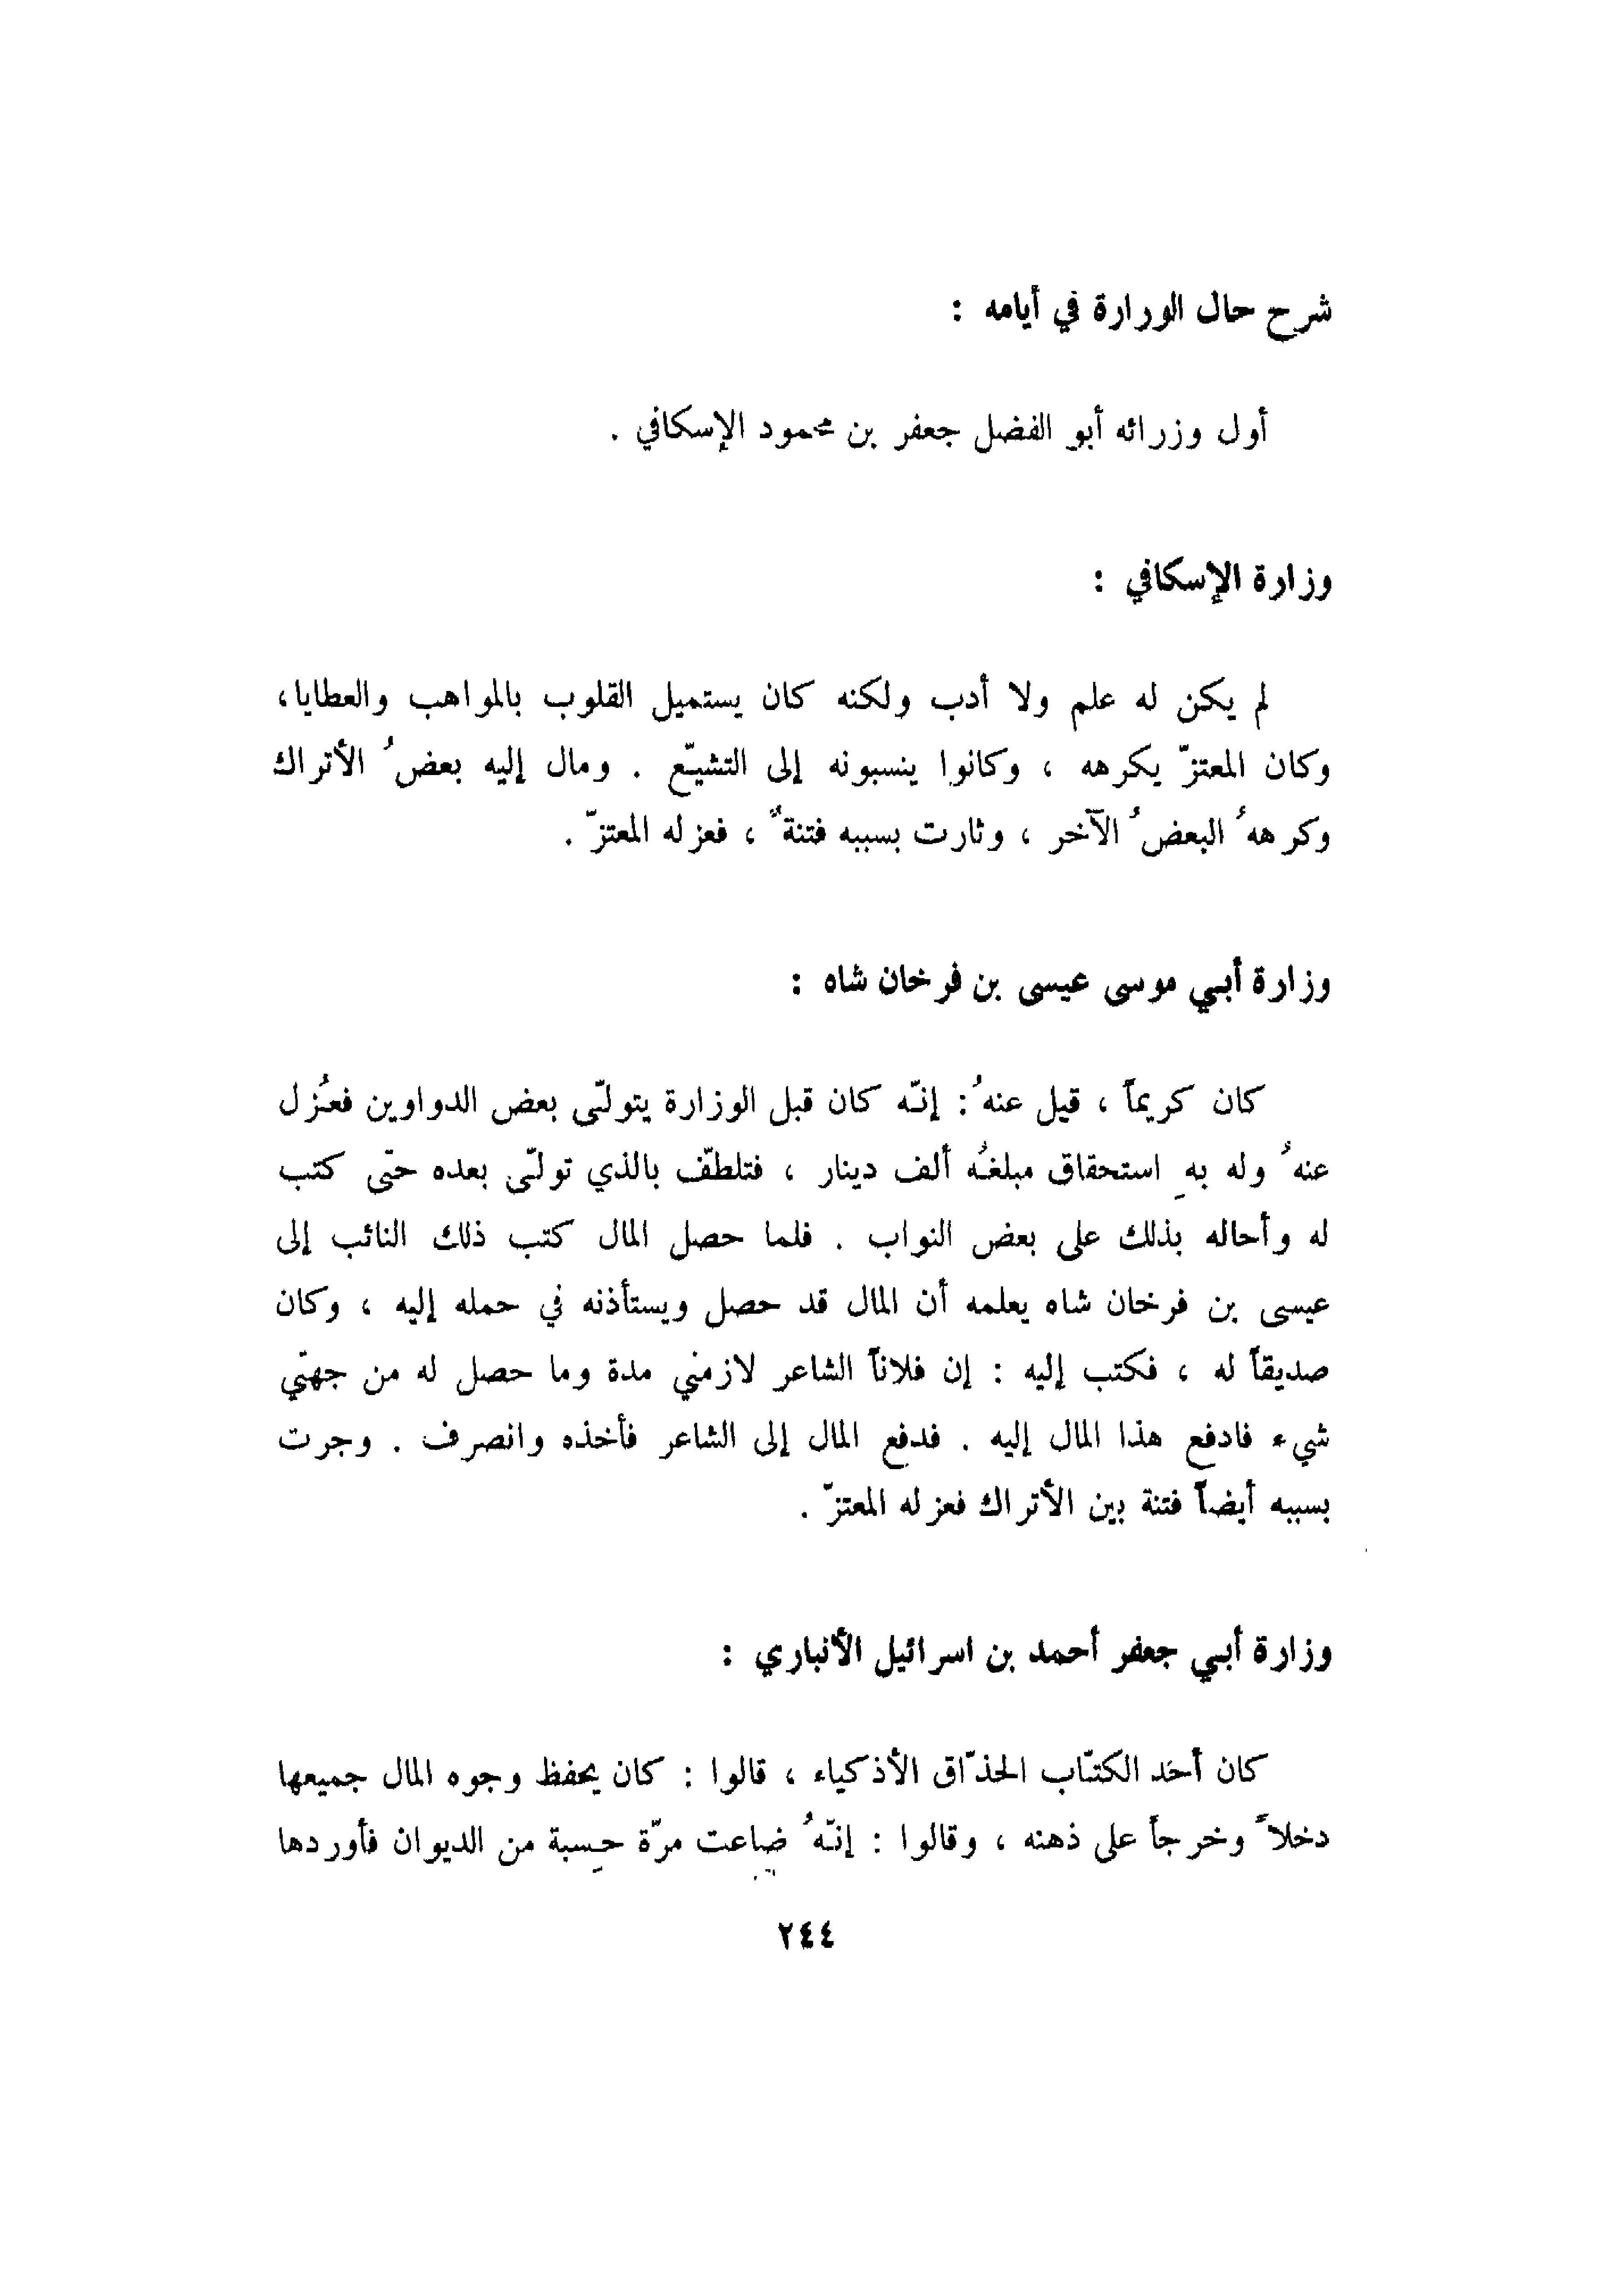 شرح حال الورارة في أيامه :
أول وزرائه أبو الفضل جعفر بن محمود الإسكافي .
وزارة الإسكافي :
لم يكن له علم ولا أدب ولكنه كان يستميل القلوب بالمواهب والعطايا،
وكان المعتزّ يكرهه ، وكانوا ينسبونه إلى التشيّع . ومال إليه بعضُ الأتراك
وكرههُ البعضُ الآخر ، وثارت بسببه فتنةٌ ، فعزله المعتزّ .
وزارة أبي موسى عيسى بن فرخان شاه :
كان كريماً ، قيل عنهُ : إنّه كان قبل الوزارة يتولّى بعض الدواوين فعُزل
عنهُ وله بهِ استحقاق مبلغُه ألف دينار ، فتلطّف بالذي تولّى بعده حتّى كتب
له وأحاله بذلك على بعض النواب . فلما حصل المال كتب ذلك النائب إلى
عيسى بن فرخان شاه يعلمه أن المال قد حصل ويستأذنه في حمله إليه ، وكان
صديقاً له ، فكتب إليه : إن فلاناً الشاعر لازمني مدة وما حصل له من جهتي
شيء فادفع هذا المال إليه . فدفع المال إلى الشاعر فأخذه وانصرف . وجرت
بسببه أيضاً فتنة بين الأتراك فعزله المعتزّ .
وزارة أبي جعفر أحمد بن اسرائيل الأنباري :
كان أحد الكتّاب الحذّاق الأذكياء ، قالوا : كان يحفظ وجوه المال جميعها
دخلاً وخرجاً على ذهنه ، وقالوا : إنّهُ ضاعت مرّة حِسبة من الديوان فأوردها
٢٤٤